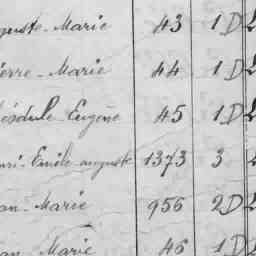 guste-Marie 43 1 D L
ierre-Marie 44 1 D L
ésdule-Eugène 45 1 D L
nri-Emile-auguste 1373 3 L
an-Marie 956 2 D L
an Marie 46 1 D L